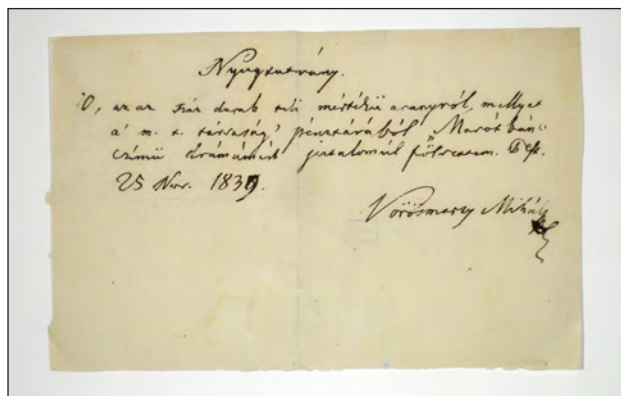 Nyugtatvány.
0, az az száz darab teli mértékü aranyról, mellyet
a' m. t. társaság' pénztárából „Marót bán"
czímü drámámért jutalomúl fölvettem. Pest.
25 Nov. 1839.
Vörösmarty Mihály